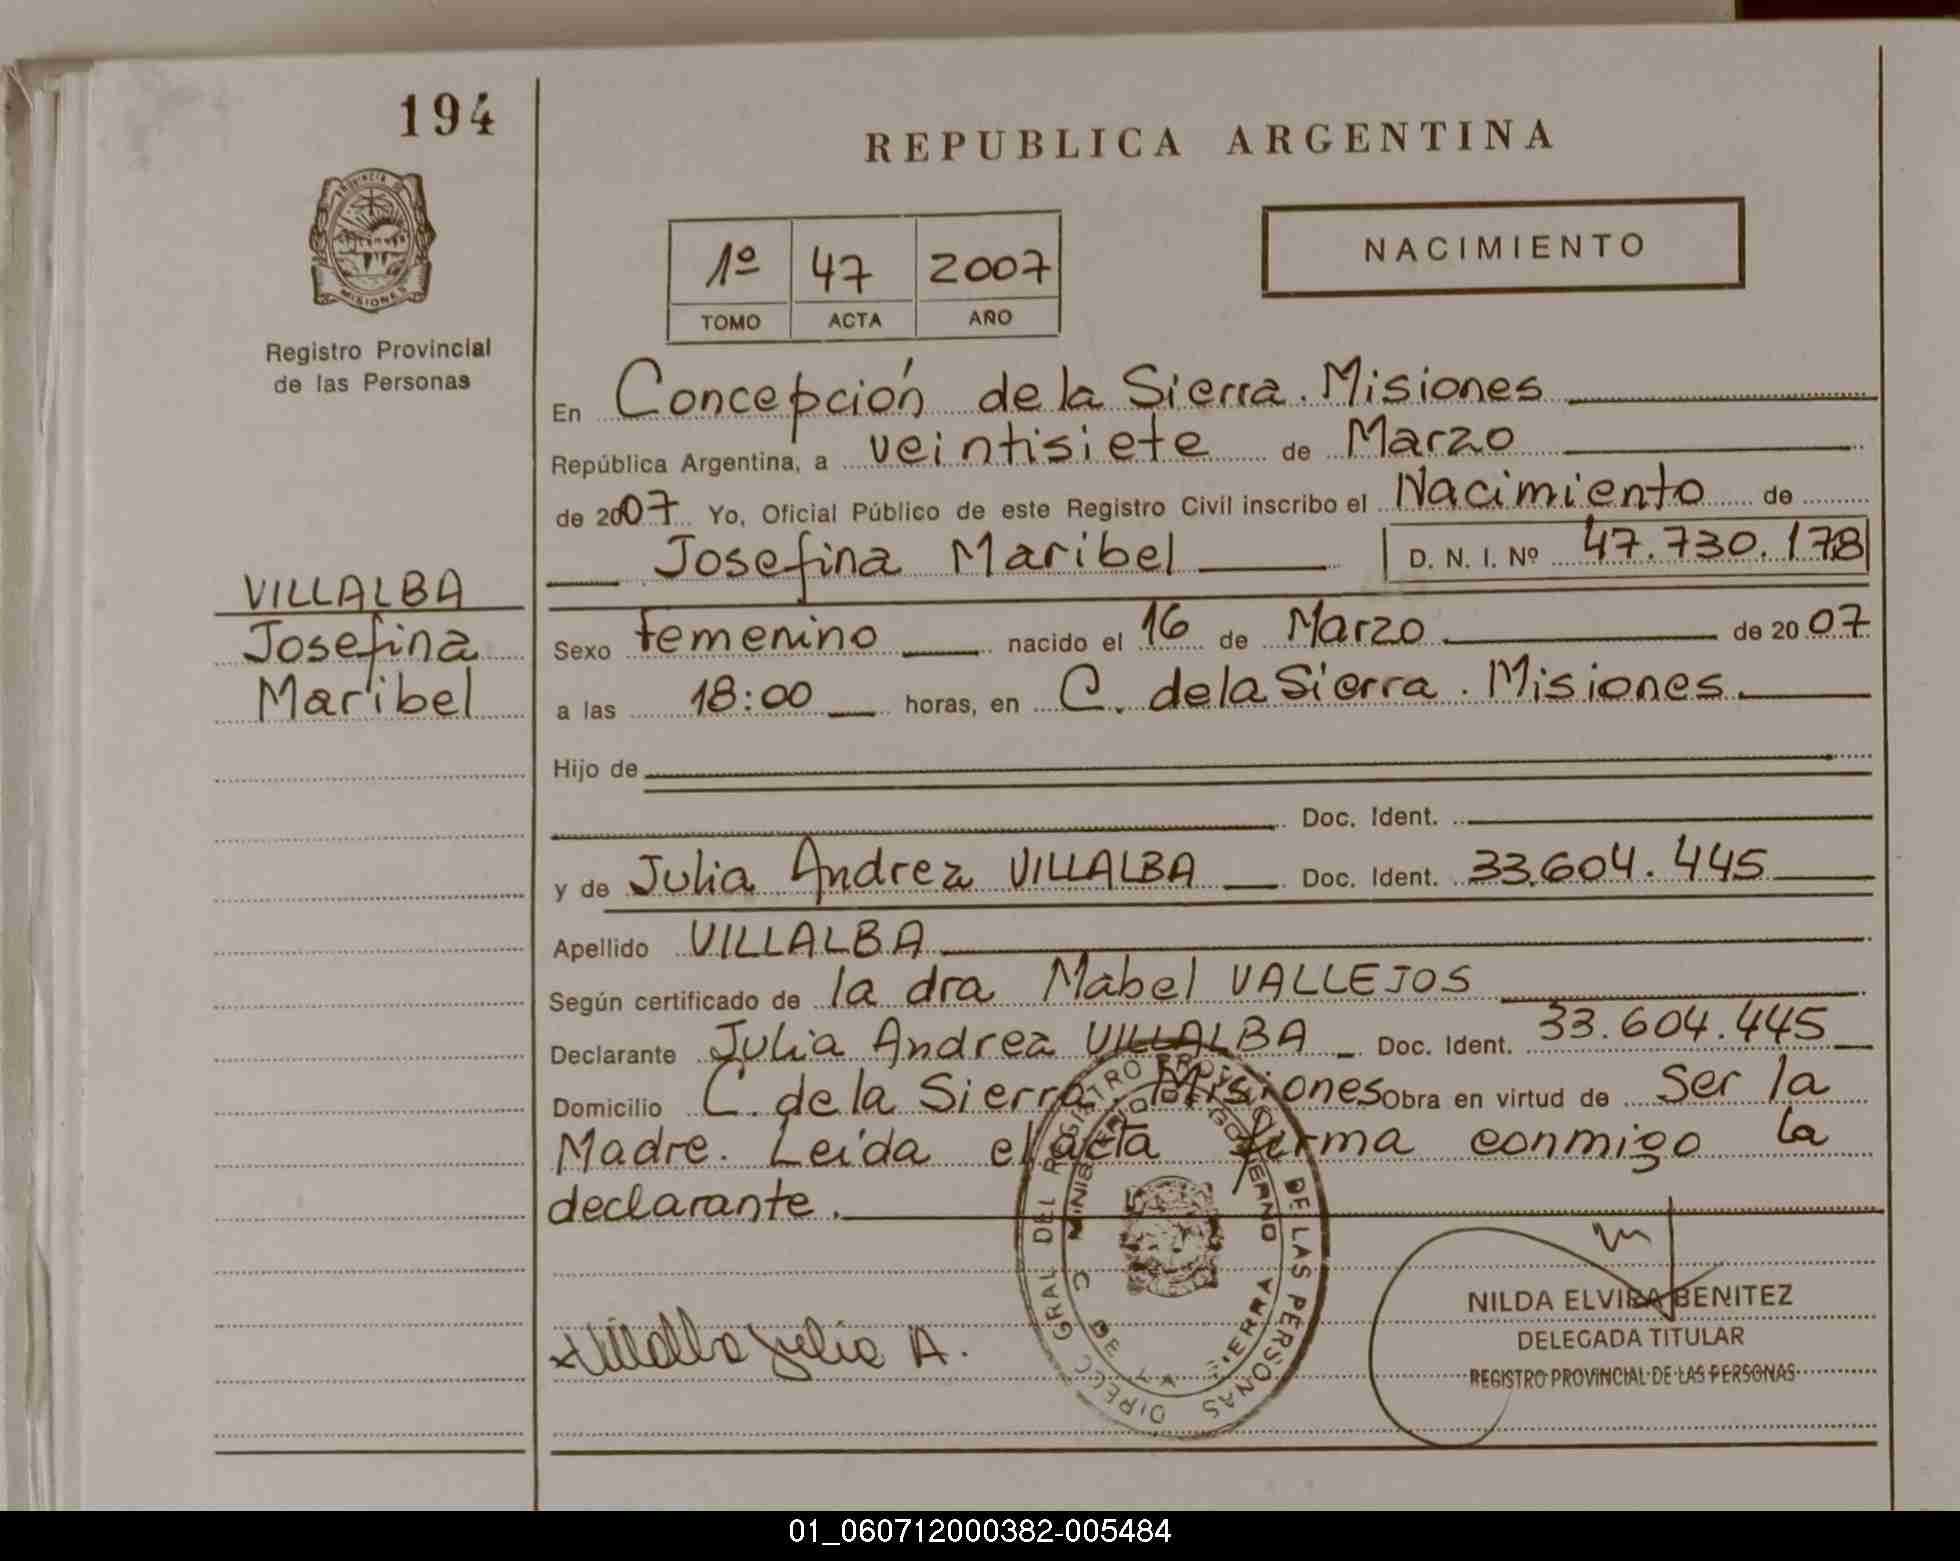 194
REPUBLICA ARGENTINA
PROVINCIA DE
MISIONES
Registro Provincial
de las Personas
1º 47 2007
TOMO ACTA AÑO
NACIMIENTO
En Concepción de la Sierra. Misiones
República Argentina, a veintisiete de Marzo
de 2007 Yo, Oficial Público de este Registro Civil inscribo el Nacimiento de
Josefina Maribel D. N. I. Nº 47.730.178
VILLALBA
Josefina
Maribel
Sexo femenino nacido el 16 de Marzo de 2007
a las 18:00 horas, en C. de la Sierra. Misiones
Hijo de
Doc. Ident.
y de Julia Andrea VILLALBA Doc. Ident. 33.604.445
Apellido VILLALBA
Según certificado de la dra Mabel VALLEJOS
Declarante Julia Andrea VILLALBA Doc. Ident. 33.604.445
Domicilio C. de la Sierra. Misiones Obra en virtud de Ser la
Madre. Leída el acta firma conmigo la
declarante.
DIREC GRAL DEL REGISTRO PROVINCIAL DE LAS PERSONAS
MINISTERIO DE GOBIERNO
C DE LA SIERRA
Villalba Julia A.
NILDA ELVIRA BENITEZ
DELEGADA TITULAR
REGISTRO PROVINCIAL DE LAS PERSONAS
01_060712000382-005484